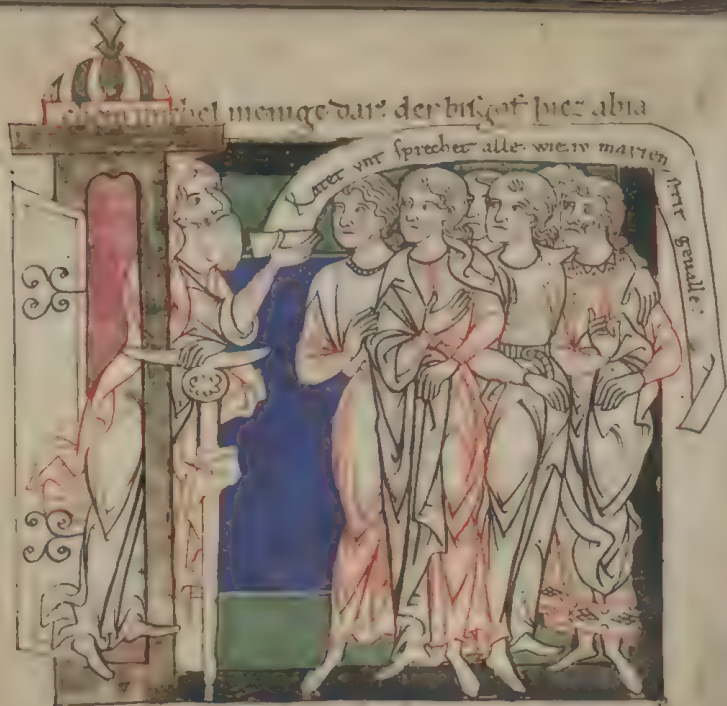 menige dar. der bisgof hiez abia
Ratet unt sprechet alle. wie iv marien. strit geualle.